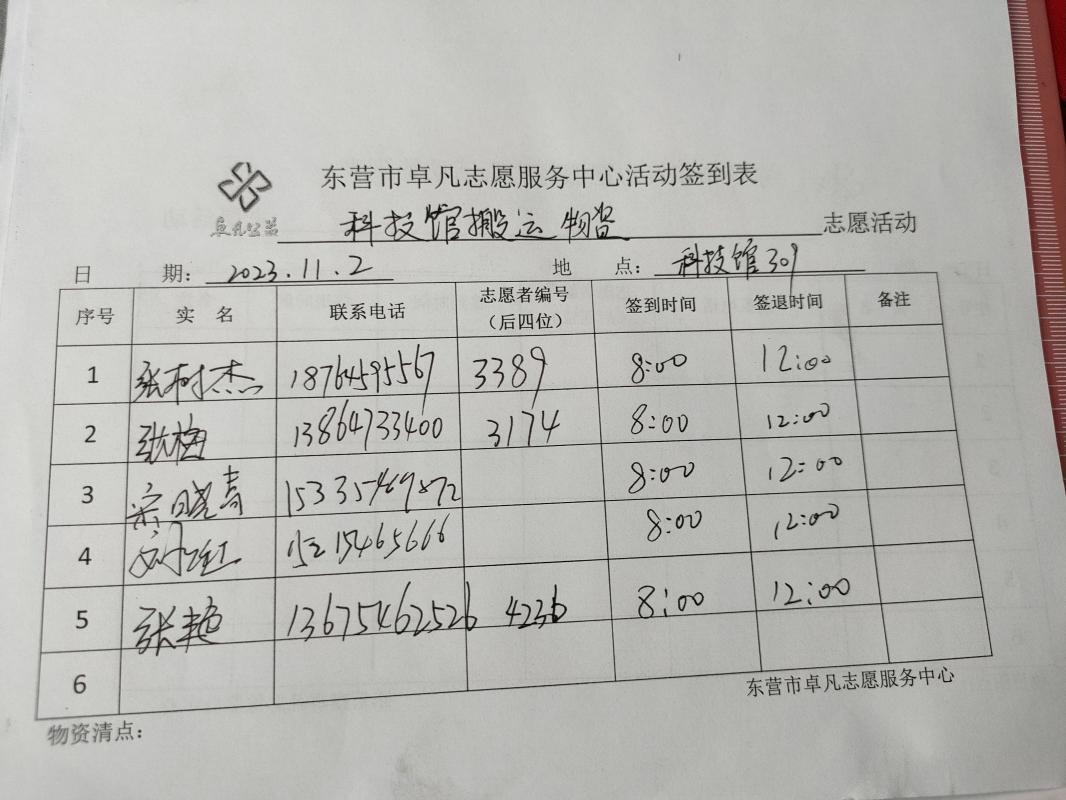 东营市卓凡志愿服务中心活动签到表
卓凡公益 科技馆搬运物资 志愿活动
日 期: 2023.11.2 地 点: 科技馆309
序号 实 名 联系电话 志愿者编号(后四位) 签到时间 签退时间 备注
1 张树杰 18764595567 3389 8:00 12:00
2 张梅 13864733400 3174 8:00 12:00
3 宋晓青 8:00 12:00
4 15215465666 8:00 12:00
5 张艳 13675462526 4236 8:00 12:00
6
东营市卓凡志愿服务中心
物资清点: